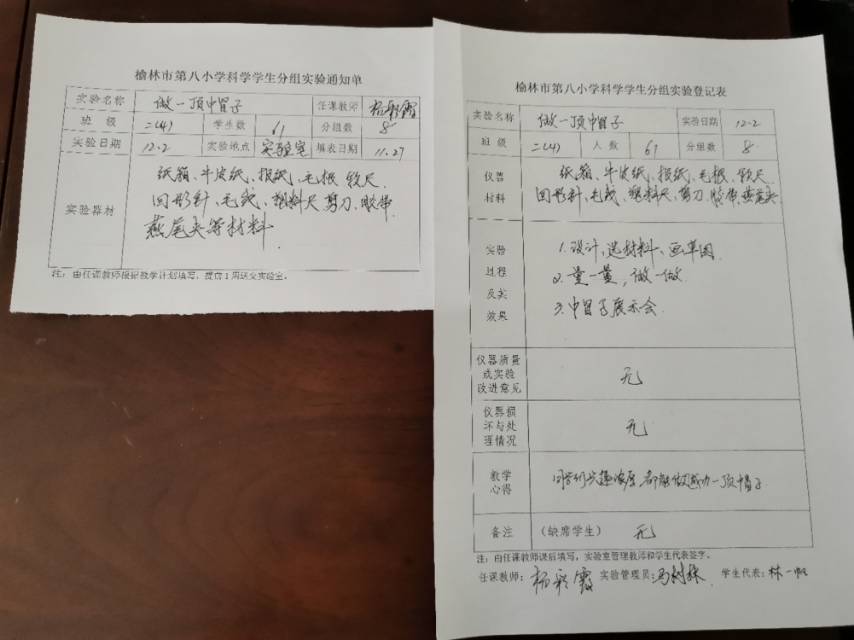 榆林市第八小学科学学生分组实验通知单
实验名称 做一顶巾冒子 任课教师 杨彩霞
班 级 二(4) 学生数 61 分组数 8
实验日期 12.2 实验地点 实验室 填表日期 11.27
实验器材
纸箱、牛皮纸、报纸、毛根、软尺
回形针、毛线、塑料尺、剪刀、胶带
燕尾夹等材料
注:由任课教师根据教学计划填写,提前1周送交实验室。
榆林市第八小学科学学生分组实验登记表
实验名称 做一顶巾冒子 实验日期 12.2
班 级 二(4) 人 数 61 分组数 8
仪器 纸箱、牛皮纸、报纸、毛根、软尺
材料 回形针、毛线、塑料尺、剪刀、胶带、燕尾夹
实验 1.设计、选材料、画草图
过程 2.量一量,做一做
及实 3.巾冒子展示会
效果
仪器质量
或实验 无
改进意见
仪器损
坏与处 无
理情况
教学 同学们兴趣浓厚,都能做成功一顶帽子
心得
备注 (缺席学生) 无
注:由任课教师课后填写,实验室管理教师和学生代表签字。
任课教师:杨彩霞 实验管理员:冯树林 学生代表:林一帆